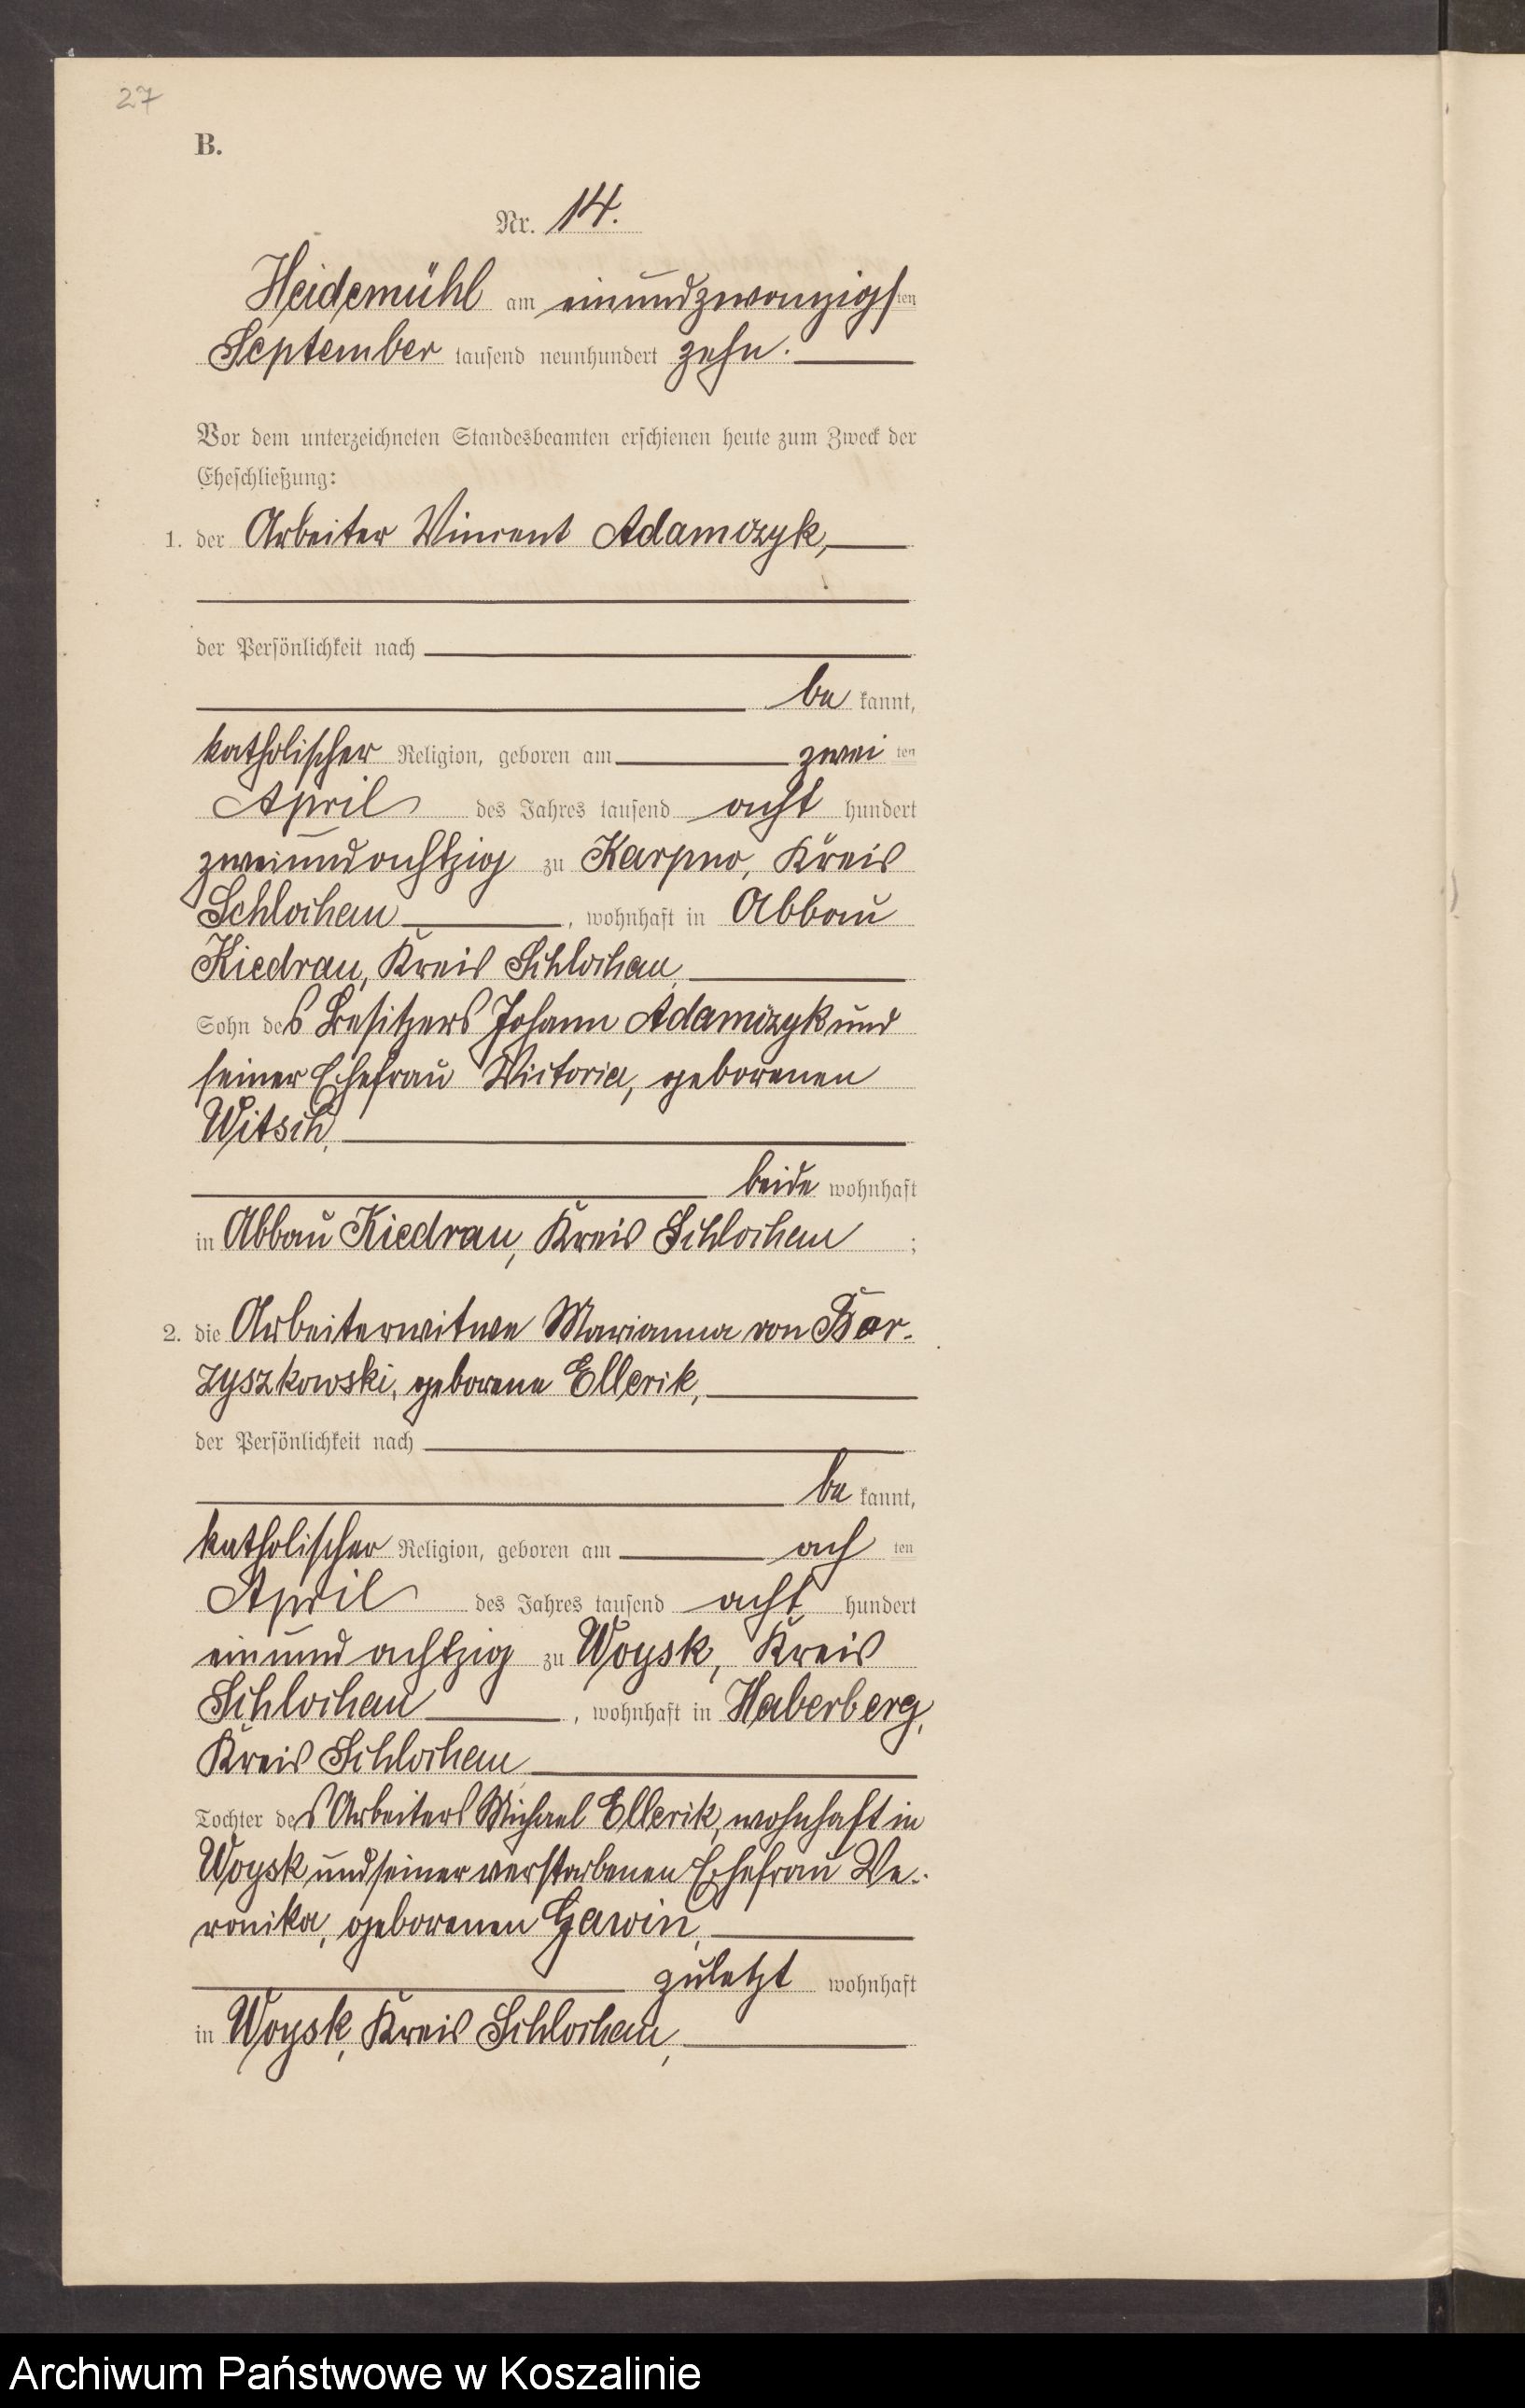 27
B.
Nr. 14.
Heidemühl am einundzwanzigsten
September tausend neunhundert zehn.
Vor dem unterzeichneten Standesbeamten erschienen heute zum Zweck der
Eheschließung:
1. der Arbeiter Vincent Adamczyk,
der Persönlichkeit nach
be kannt,
katholischer Religion, geboren am zwei ten
April des Jahres tausend acht hundert
zweiundachtzig zu Karpno, Kreis
Schlochau, wohnhaft in Abbau
Kiedrau, Kreis Schlochau,
Sohn des Besitzers Johann Adamczyk und
seiner Ehefrau Victoria, geborenen
Witsch,
beide wohnhaft
in Abbau Kiedrau, Kreis Schlochau ;
2. die Arbeiterwitwe Marianna von Bor-
zyszkowski, geborene Ellerik,
der Persönlichkeit nach
be kannt,
katholischer Religion, geboren am ach ten
April des Jahres tausend acht hundert
einund achtzig zu Woysk, Kreis
Schlochau, wohnhaft in Haberberg,
Kreis Schlochau,
Tochter des Arbeiters Michael Ellerik, wohnhaft in
Woysk und seiner verstorbenen Ehefrau Ve-
ronika, geborenen Gawin,
zuletzt wohnhaft
in Woysk, Kreis Schlochau,
Archiwum Państwowe w Koszalinie